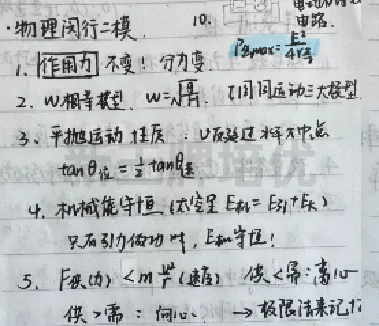 ·物理闵行二模.
10.
电路.
P出max=E²/4r
1. 作用力 不变! 分力变.
2. W相等模型. W=√
3. 平抛运动 性质. V反延过水平中点
tanθ位=½tanθ速
4. 机械能守恒(太空星 E机=E引+Ek)
只有引力做功时,E机守恒!
5. F供(力)<m v²/r(速度) 供<需:离心
供>需:向心. →极限情来记忆